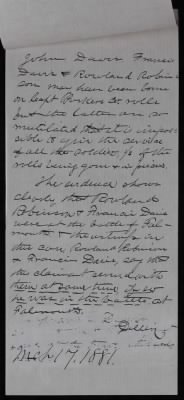 John Davis Francis
Davis & Rowland Robin
son may have been borne
on Capt rolls
but the latter are so
mutilated that it is impos
sible to give the service
of all the soldiers, ½ of the
rolls being gone
The evidence shows
clearly that Rowland
Robinson & Francis Davis
were in the battle of Fal
mouth & the witness in
the case, Rowland Robinson
& Francis Davis, say that
the claimant served with
them at same time & so
he was in the battle at
Falmouth.
Mch. 17. 1881.